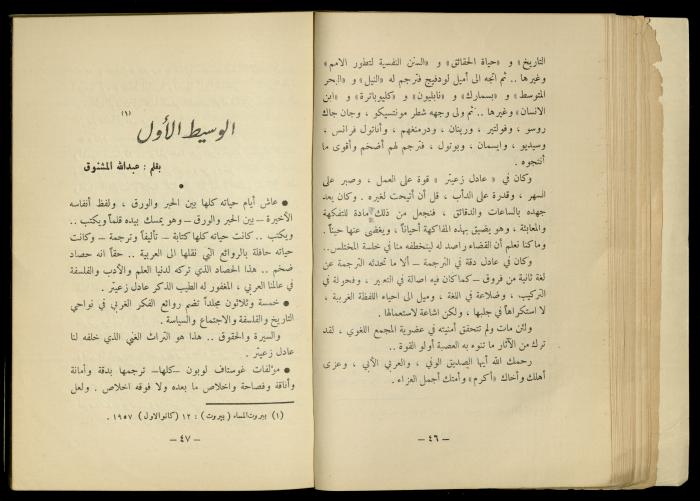 التاريخ» و «حياة الحقائق» و «السنن النفسية لتطور الامم»
وغيرها .. ثم اتجه الى أميل لودفيج فترجم له «النيل» و «البحر
المتوسط» و «بسمارك» و «نابليون» و «كليوباترة» و «ابن
الانسان» وغيرها .. ثم ولى وجهه شطر مونتسيكو ، وجان جاك
روسو ، وفولتير ، ورينان ، ودرمنغهم ، وأناتول فرانس ،
وسيديو ، وايسمان ، وبوتول ، فترجم لهم أضخم وأقوى ما
انتجوه .
وكان في « عادل زعيتر » قوة على العمل ، وصبر على
السهر ، وقدرة على الدأب ، قل أن أتيحت لغيره . وكان يعد
جهده بالساعات والدقائق ، فنجعل من ذلك مادة للتفكهة
والمعابثة ، وهو يضيق بهذه المفاكهة أحياناً ، ويغضي عنها حيناً .
وما كنا نعلم أن القضاء راصد له لينخطفه منا في خلسة المختلس..
وكان في عادل دقة في الترجمة – ألا ما تحدثه الترجمة عن
لغة ثانية من فروق – كما كان فيه اصالة في التعبير ، وفحولة في
التركيب ، وضلاعة في اللغة ، وميل الى احياء اللفظة الغريبة ،
لا استكراهاً في جلبها ، ولكن اشاعة لاستعمالها .
ولئن مات ولم تتحقق أمنيته في عضوية المجمع اللغوي ، لقد
ترك من الآثار ما تنوء به العصبة أولو القوة ..
رحمك الله أيها الصديق الوفي ، والعربي الأبي ، وعزى
أهلك وأخاك «أكرم» وأمتك أجمل العزاء .
– ٤٦ –
الوسيط الأول (١)
بقلم : عبدالله المشنوق
● عاش أيام حياته كلها بين الحبر والورق ، ولفظ أنفاسه
الأخيرة – بين الحبر والورق – وهو يمسك بيده قلماً ويكتب ..
ويكتب .. كانت حياته كلها كتابة – تأليفاً وترجمة – وكانت
حياته حافلة بالروائع التي نقلها الى العربية .. حقاً انه حصاد
ضخم .. هذا الحصاد الذي تركه لدنيا العلم والأدب والفلسفة
في عالمنا العربي ، المغفور له الطيب الذكر عادل زعيتر .
● خمسة وثلاثون مجلداً تضم روائع الفكر الغربي في نواحي
التاريخ والفلسفة والاجتماع والسياسة .
والسيرة والحقوق .. هذا هو التراث الغني الذي خلفه لنا
عادل زعيتر .
● مؤلفات غوستاف لوبون – كلها – ترجمها بدقة وأمانة
وأناقة وفصاحة واخلاص ما بعده ولا فوقه اخلاص . ولعل
(١) بيروت المساء ( بيروت ) : ١٢ ( كانو الاول ) ١٩٥٧ .
– ٤٧ –